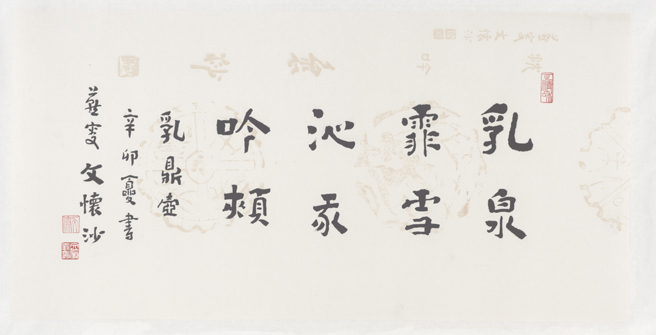 乳泉
霏雪
沁我
吟頰
乳鼎壺
辛卯夏書
燕叟文懷沙